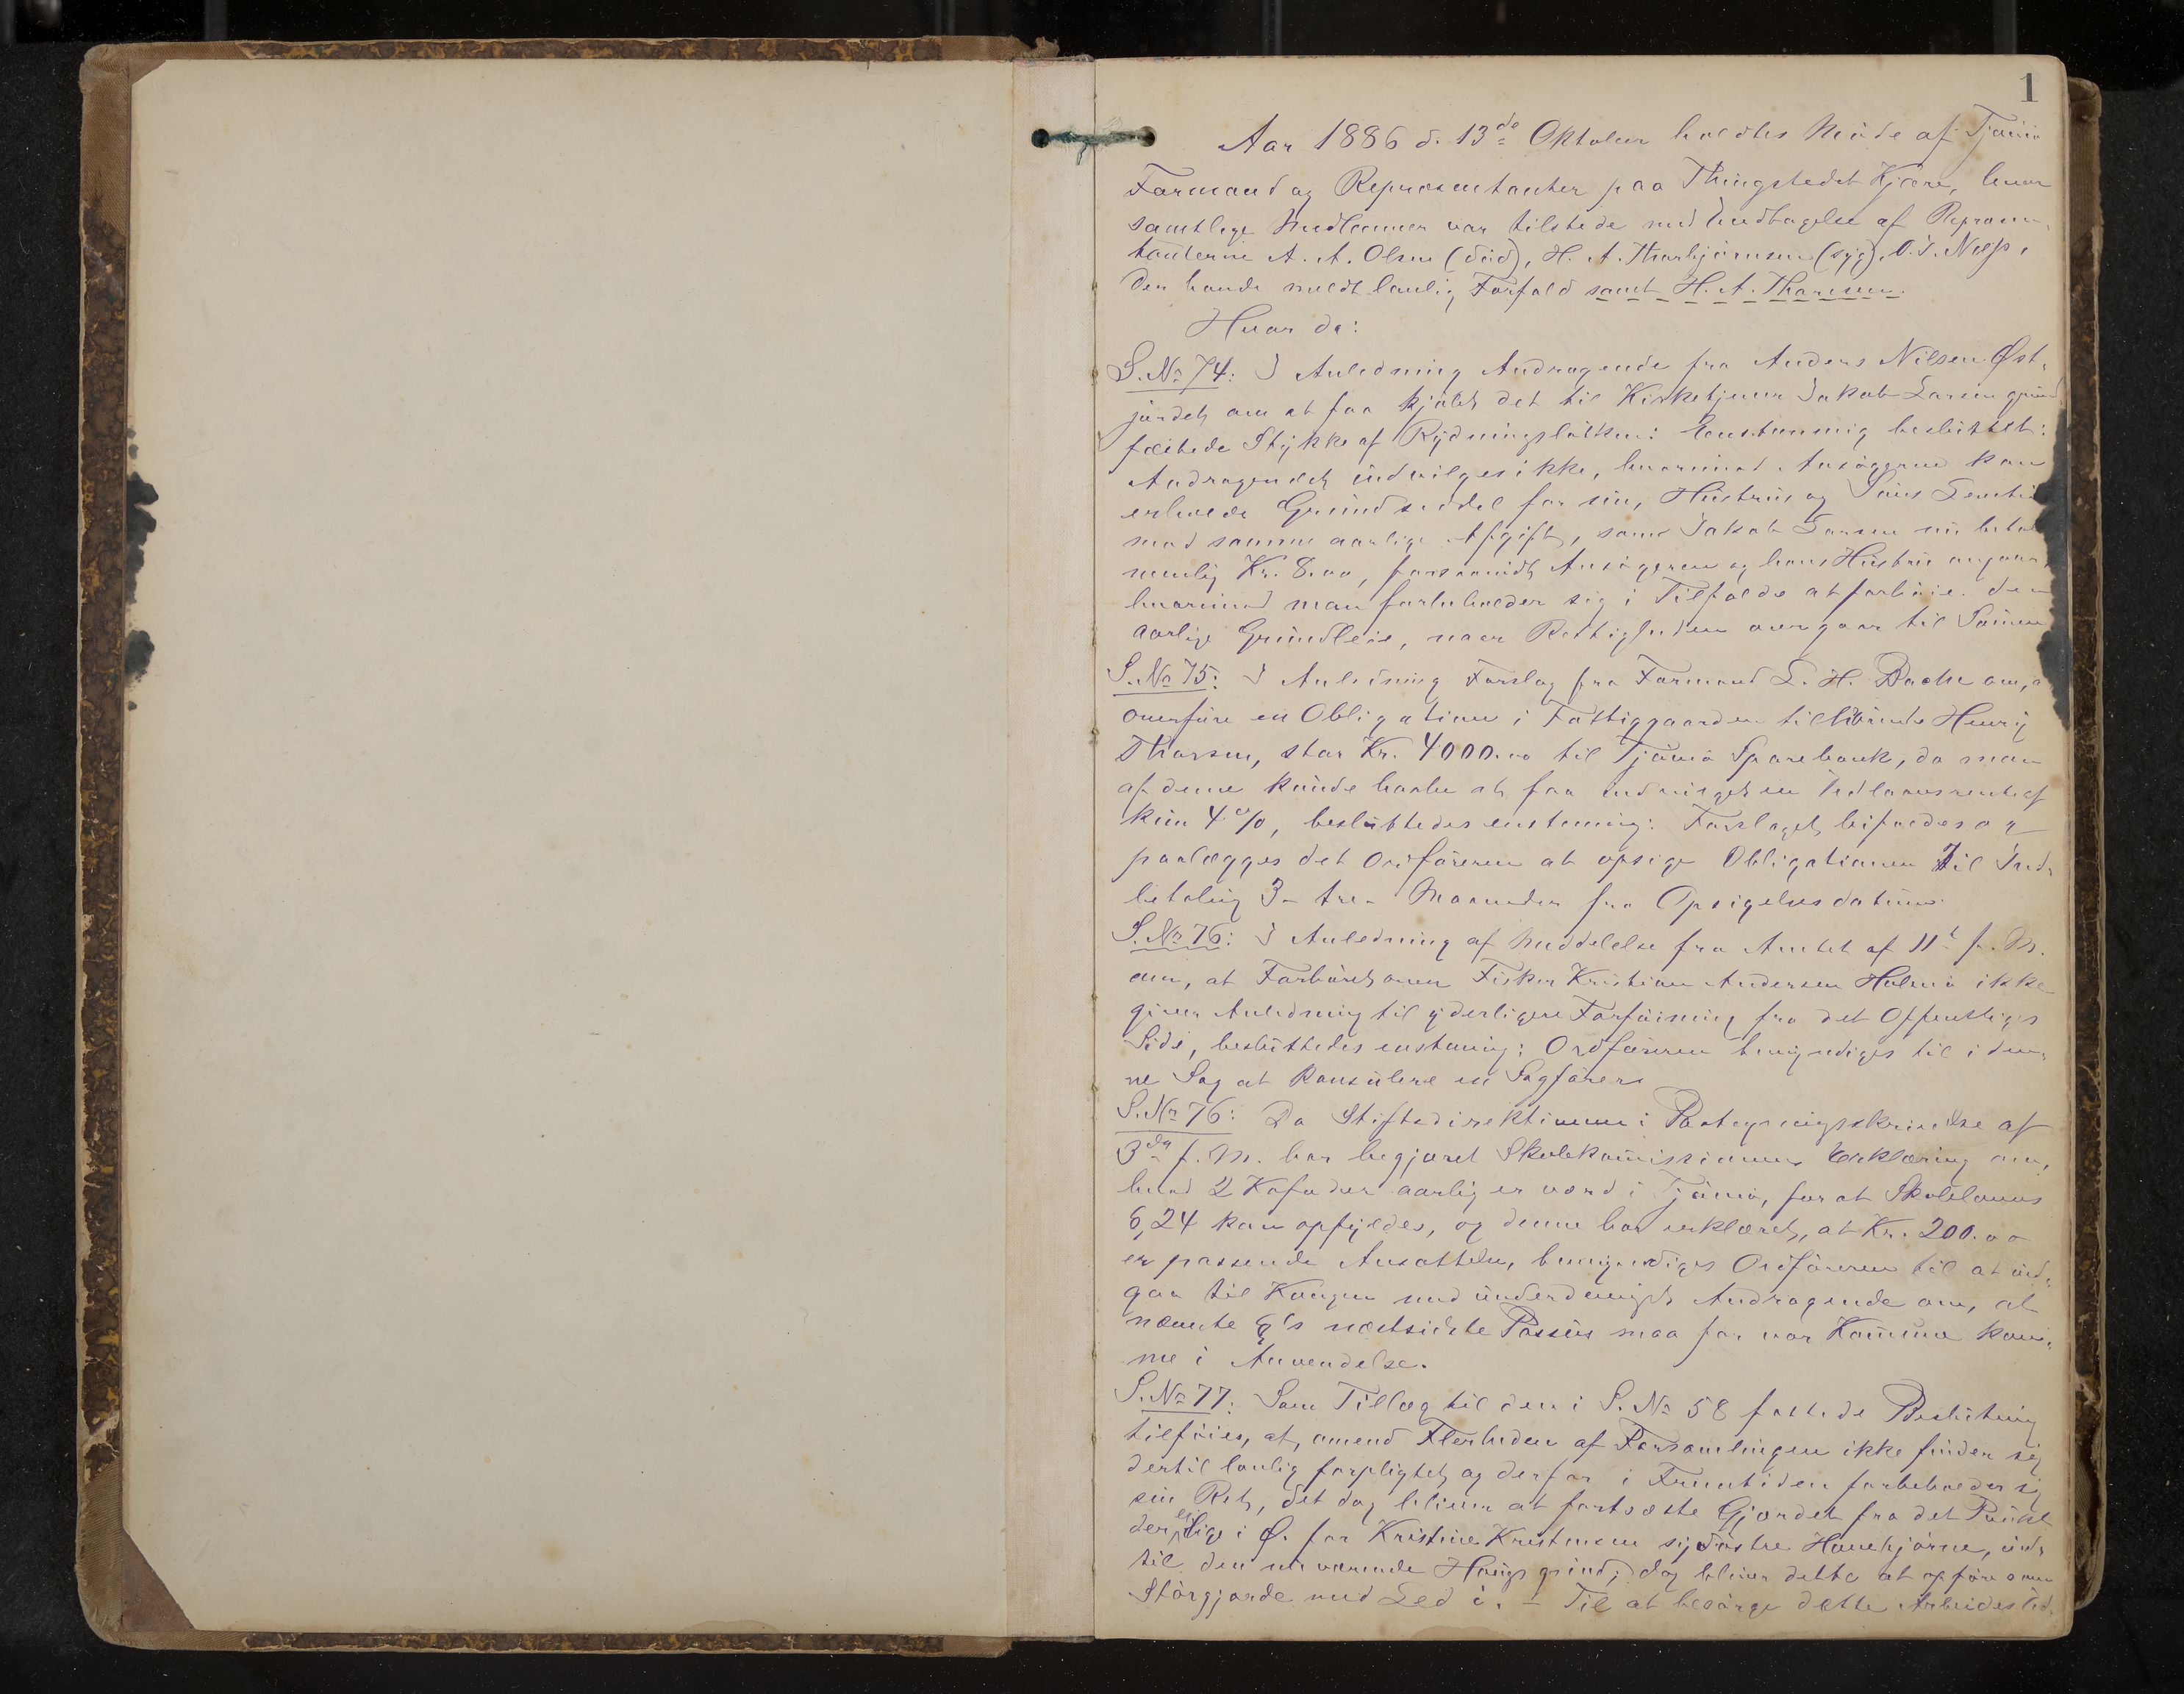 1
Aar 1886 d. 13de Oktober holdtes Möde af Tjömö
Formænd og Repræsentanter paa Thingstedet Kjære, hvor
samtlige Medlemmer var tilstede med Undtagelse af Repræsen-
tanterne A. A. Olsen (död), H. A. Thorbjörnsen (syg), O. J. Næss,
der havde meldt lovlig Forfald samt H. A. Thoresen.
Hvor da:
S. No 74: I Anledning Andragende fra Anders Nilsen Øst-
jordet om at faa kjöbt det til Kirketjener Jakob Larsen grund
fæstede Stykke af Rydningslökken: Enstemmig besluttet:
Andragendet indvilges ikke, hvorimod Ansögeren kan
erholde Grundseddel for sin, Hustrus og Söns Levetid
mod samme aarlige Afgift, som Jakob Larsen nu betal
nemlig Kr. 8.00, forsaavidt Ansögeren og hans Hustru angaar,
hvorimod man forbeholder sig i Tilfælde at forhöie den
aarlige Grundleie, naar Rettigheden overgaar til Sönnen
S. No 75: I Anledning Forslag fra Formand L. H. Bache om, a
overföre en Obligation i Fattiggaarden tilhörende Henrig
Thorsen, stor Kr. 4000.00 til Tjömö Sparebank, da man
af denne kunde haabe at faa indvilget en Udlaansrente af
kun 4 %, besluttedes enstemmig: Forslaget bifaldes og
paalægges det Ordföreren at opsige Obligationen til Ind-
betaling 3 - tre - Maaneder fra Opsigelsesdatum.
S. No 76: I Anledning af Meddelelse fra Amtet af 11t f. M.
om, at Forhöret over Fisker Kristian Andersen Holmö ikke
giver Anledning til yderligere Forföining fra det Offentliges
Side, besluttedes enstemmig: Ordföreren bemyndiges til i den-
ne Sag at konsulere en Sagförer.
S. No 76: Da Stiftsdirektionen i Paategningsskrivelse af
3de f. M. har begjæret Skolekommissionens Erklæring om,
hvad 2 Kofoder aarlig er værd i Tjömö, for at Skolelovens
§ 24 kan opfyldes, og denne har erklæret, at Kr. 200.00
er passende Ansættelse, bemyndiges Ordföreren til at ind-
gaa til Kongen med underdanigst Andragende om, at
nævnte §'s næstsidste Passus maa for vor Kommune kom-
me i Anvendelse.
S. No 77: Som Tillæg til den i S. No 58 fattede Beslutning
tilföies, at, omend Flerheden af Forsamlingen ikke finder sig
dertil lovlig forpligtet og derfor i Fremtiden forbeholder sig
sin Ret, det dog bliver at fortsætte Gjerdet fra det Punkt
der ligger i Ø. for Kristine Kristensens sydöstre Havehjörne, ind-
til den nuværende Haugs grind; dog bliver dette at opföre som
Störgjærde med Led i. - Til at besörge dette Arbeides Ud-